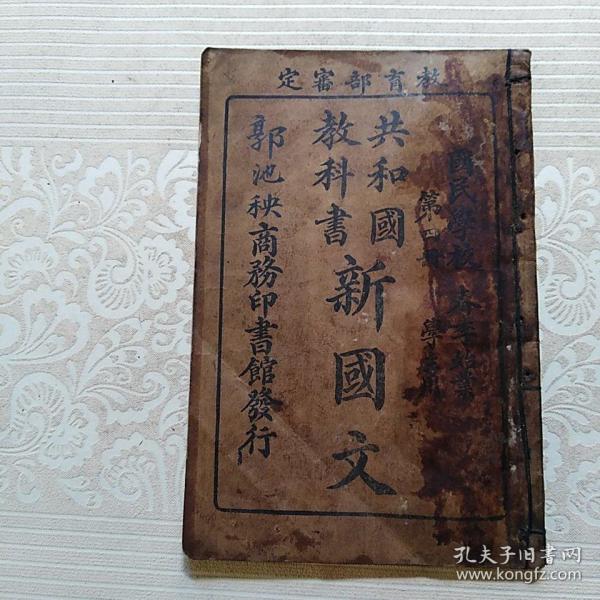 教育部審定
國民學校
春季始業
第四冊
學生用
共和國
教科書
新國文
郭池秧商務印書館發行
孔夫子旧书网
www.kongfz.com